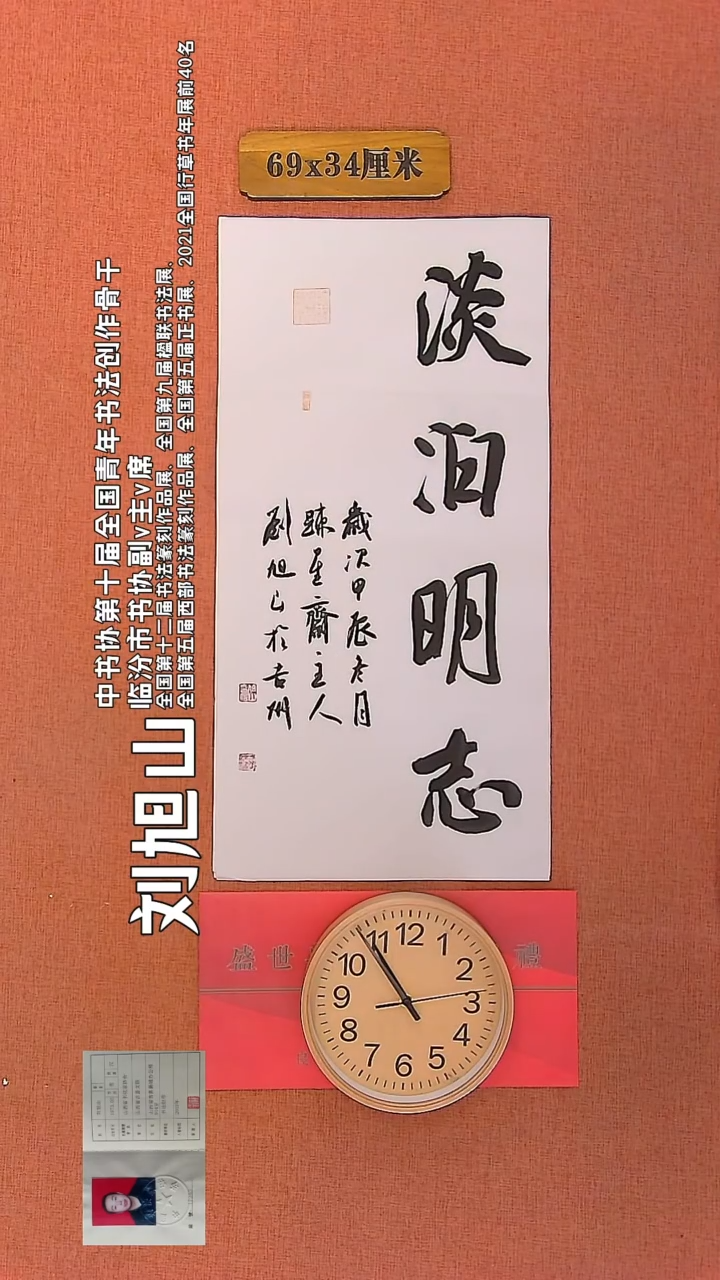 69x34厘米
淡泊明志
歲次甲辰冬月
疎星齋主人
劉旭山於吉州
中书协第十届全国青年书法创作骨干
临汾市书协副v主v席
全国第十二届书法篆刻作品展、全国第九届楹联书法展、
全国第五届西部书法篆刻作品展、全国第五届正书展、2021全国行草书年展前40名
刘旭山
盛世
禮
12
1
2
3
4
5
6
7
8
9
10
11